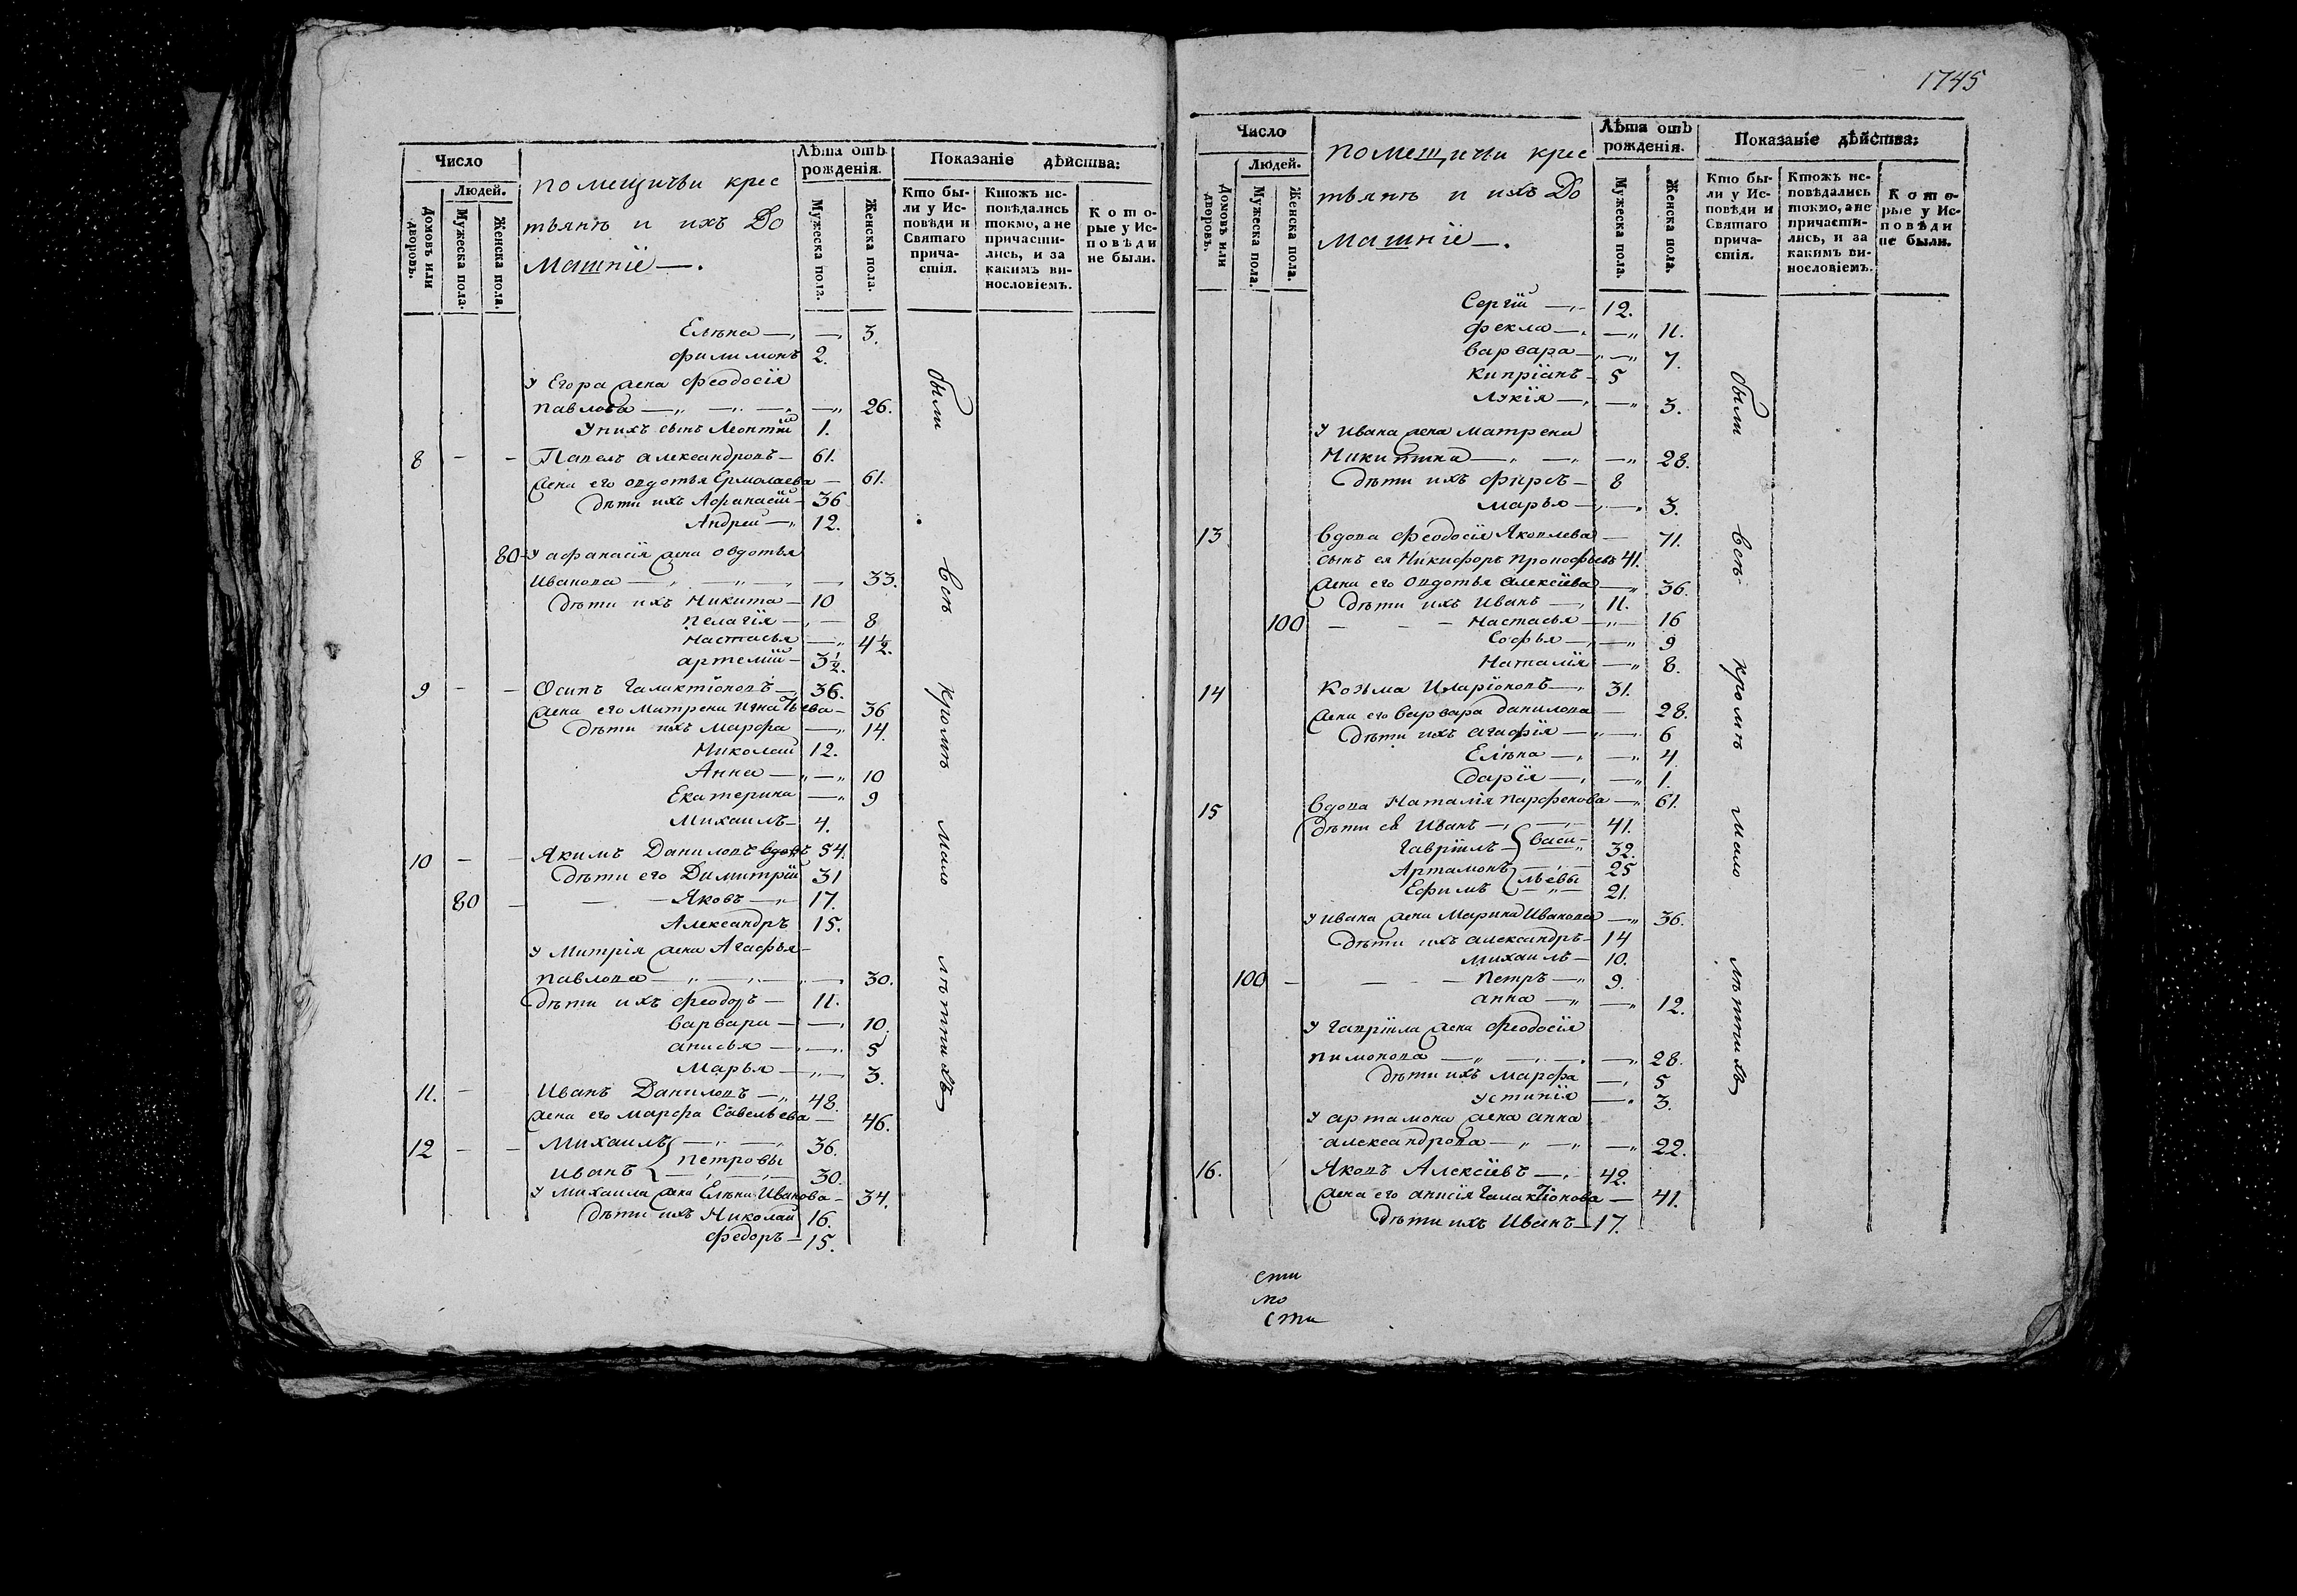 Число
Людей.
Домовъ или дворовъ.
Мужеска пола.
Женска пола.
помещичьи крес
тьянъ и ихъ до
машніе —.
Лѣта отъ рожденія.
Мужеска пола.
Женска пола.
Показаніе дѣйства:
Кто бы-
ли у Ис-
повѣди и
Святаго
прича-
стія.
Ктожъ ис-
повѣдались
токмо, а не
причасти-
лись, и за
какимъ ви-
нословіемъ.
Кото-
рые у Ис-
повѣди
не были.
Елѣна — — 3.
филимонъ 2.
у Егора жена Феодосія
Павлова — — — — 26.
у нихъ сынъ Леонтій 1.
8 - - Павелъ Александровъ — 61.
жена его овдотья Ермолаева — 61.
дѣти ихъ Афанасій — 36
Андрей — 12.
80 у афанасія жена овдотья
Иванова — — — — 33.
дѣти ихъ Никита — 10
пелагія — — 8
настасья — 4½.
артемій — 3½.
9 - - Осипъ Галактіоновъ — 36.
жена его Матрена Игнатьева — 36
дѣти ихъ Марфа — 14.
Николай 12.
Анна — — 10
Екатерина — 9
Михаилъ — 4.
10 - - Якимъ Даниловъ вдовъ 54.
дѣти его Димитрій 31
80 - — — Яковъ — 17.
Александръ 15.
у Митрія жена Агафья —
Павлова — — — 30.
дѣти ихъ Феодоръ — 11.
варвара — — 10.
анисья — — 5
Марья — — 3.
11. - Иванъ Даниловъ — 48.
жена его марфа Савельева — 46.
12 - - Михаилъ — — 36.
Петровы
иванъ — — 30.
у михаила жена Елѣна Иванова — 34.
дѣти ихъ Николай 16.
Федоръ — 15.
были всѣ кромѣ мало лѣтнихъ
1745
Число
Людей.
Домовъ или дворовъ.
Мужеска пола.
Женска пола.
помещичи крес
тьянъ и ихъ до
машніе —.
Лѣта отъ рожденія.
Мужеска пола.
Женска пола.
Показаніе дѣйства:
Кто бы-
ли у Ис-
повѣди и
Святаго
прича-
стія.
Ктожъ ис-
повѣдались
токмо, а не
причасти-
лись, и за
какимъ ви-
нословіемъ.
Кото-
рые у Ис-
повѣди
не были.
Сергій — 12.
Фекла — — 11.
варвара — — 7.
Кипріанъ — 5
Лукія — — 3.
у ивана жена матрена
Никитина — — — 28.
дѣти ихъ Фирсъ — 8
марья — — 3.
13 вдова Феодосія Яковлева — 71.
сынъ ея Никифоръ Прокофьевъ 41.
жена его овдотья алексіева — 36.
дѣти ихъ Иванъ — 11.
100 — - - Настасья — 16
Софья — — 9
Наталія — 8.
14 Козьма Иларіоновъ — 31.
жена его варвара данилова — 28.
дѣти ихъ агафія — — 6
Елѣна — — 4
дарія — — 1.
15 вдова Наталія Парфенова — 61.
дѣти ея Иванъ — — 41.
Гавріилъ — Васи- 32.
Артамонъ — — 25
Ефимъ льевы 21.
у ивана жена Марина Иванова — 36.
дѣти ихъ александръ — 14
михаилъ — 10.
100 - — - — Петръ — 9.
анна — — 12.
у гавріила жена Феодосія
пимонова — — — — 28.
дѣти ихъ марфа — 5
устинія — 3.
у артамона жена анна
александрова — — — 22.
16. Яковъ Алексіевъ — 42.
жена его анисія галактіонова — 41.
дѣти ихъ Иванъ — 17.
были всѣ кромѣ мало лѣтнихъ
сти
по
сти